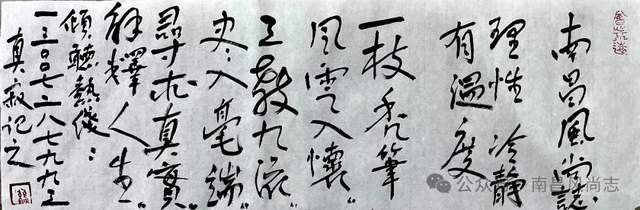 南昌風尚誌
理性 冷静
有温度
一枝秃筆
風雲入懷
三教九流
尽入毫端
尋求真實
解釋人生
傾聽熱綫：
一三〇〇七二八七九九三
真寂記之
公众号 · 南昌风尚志